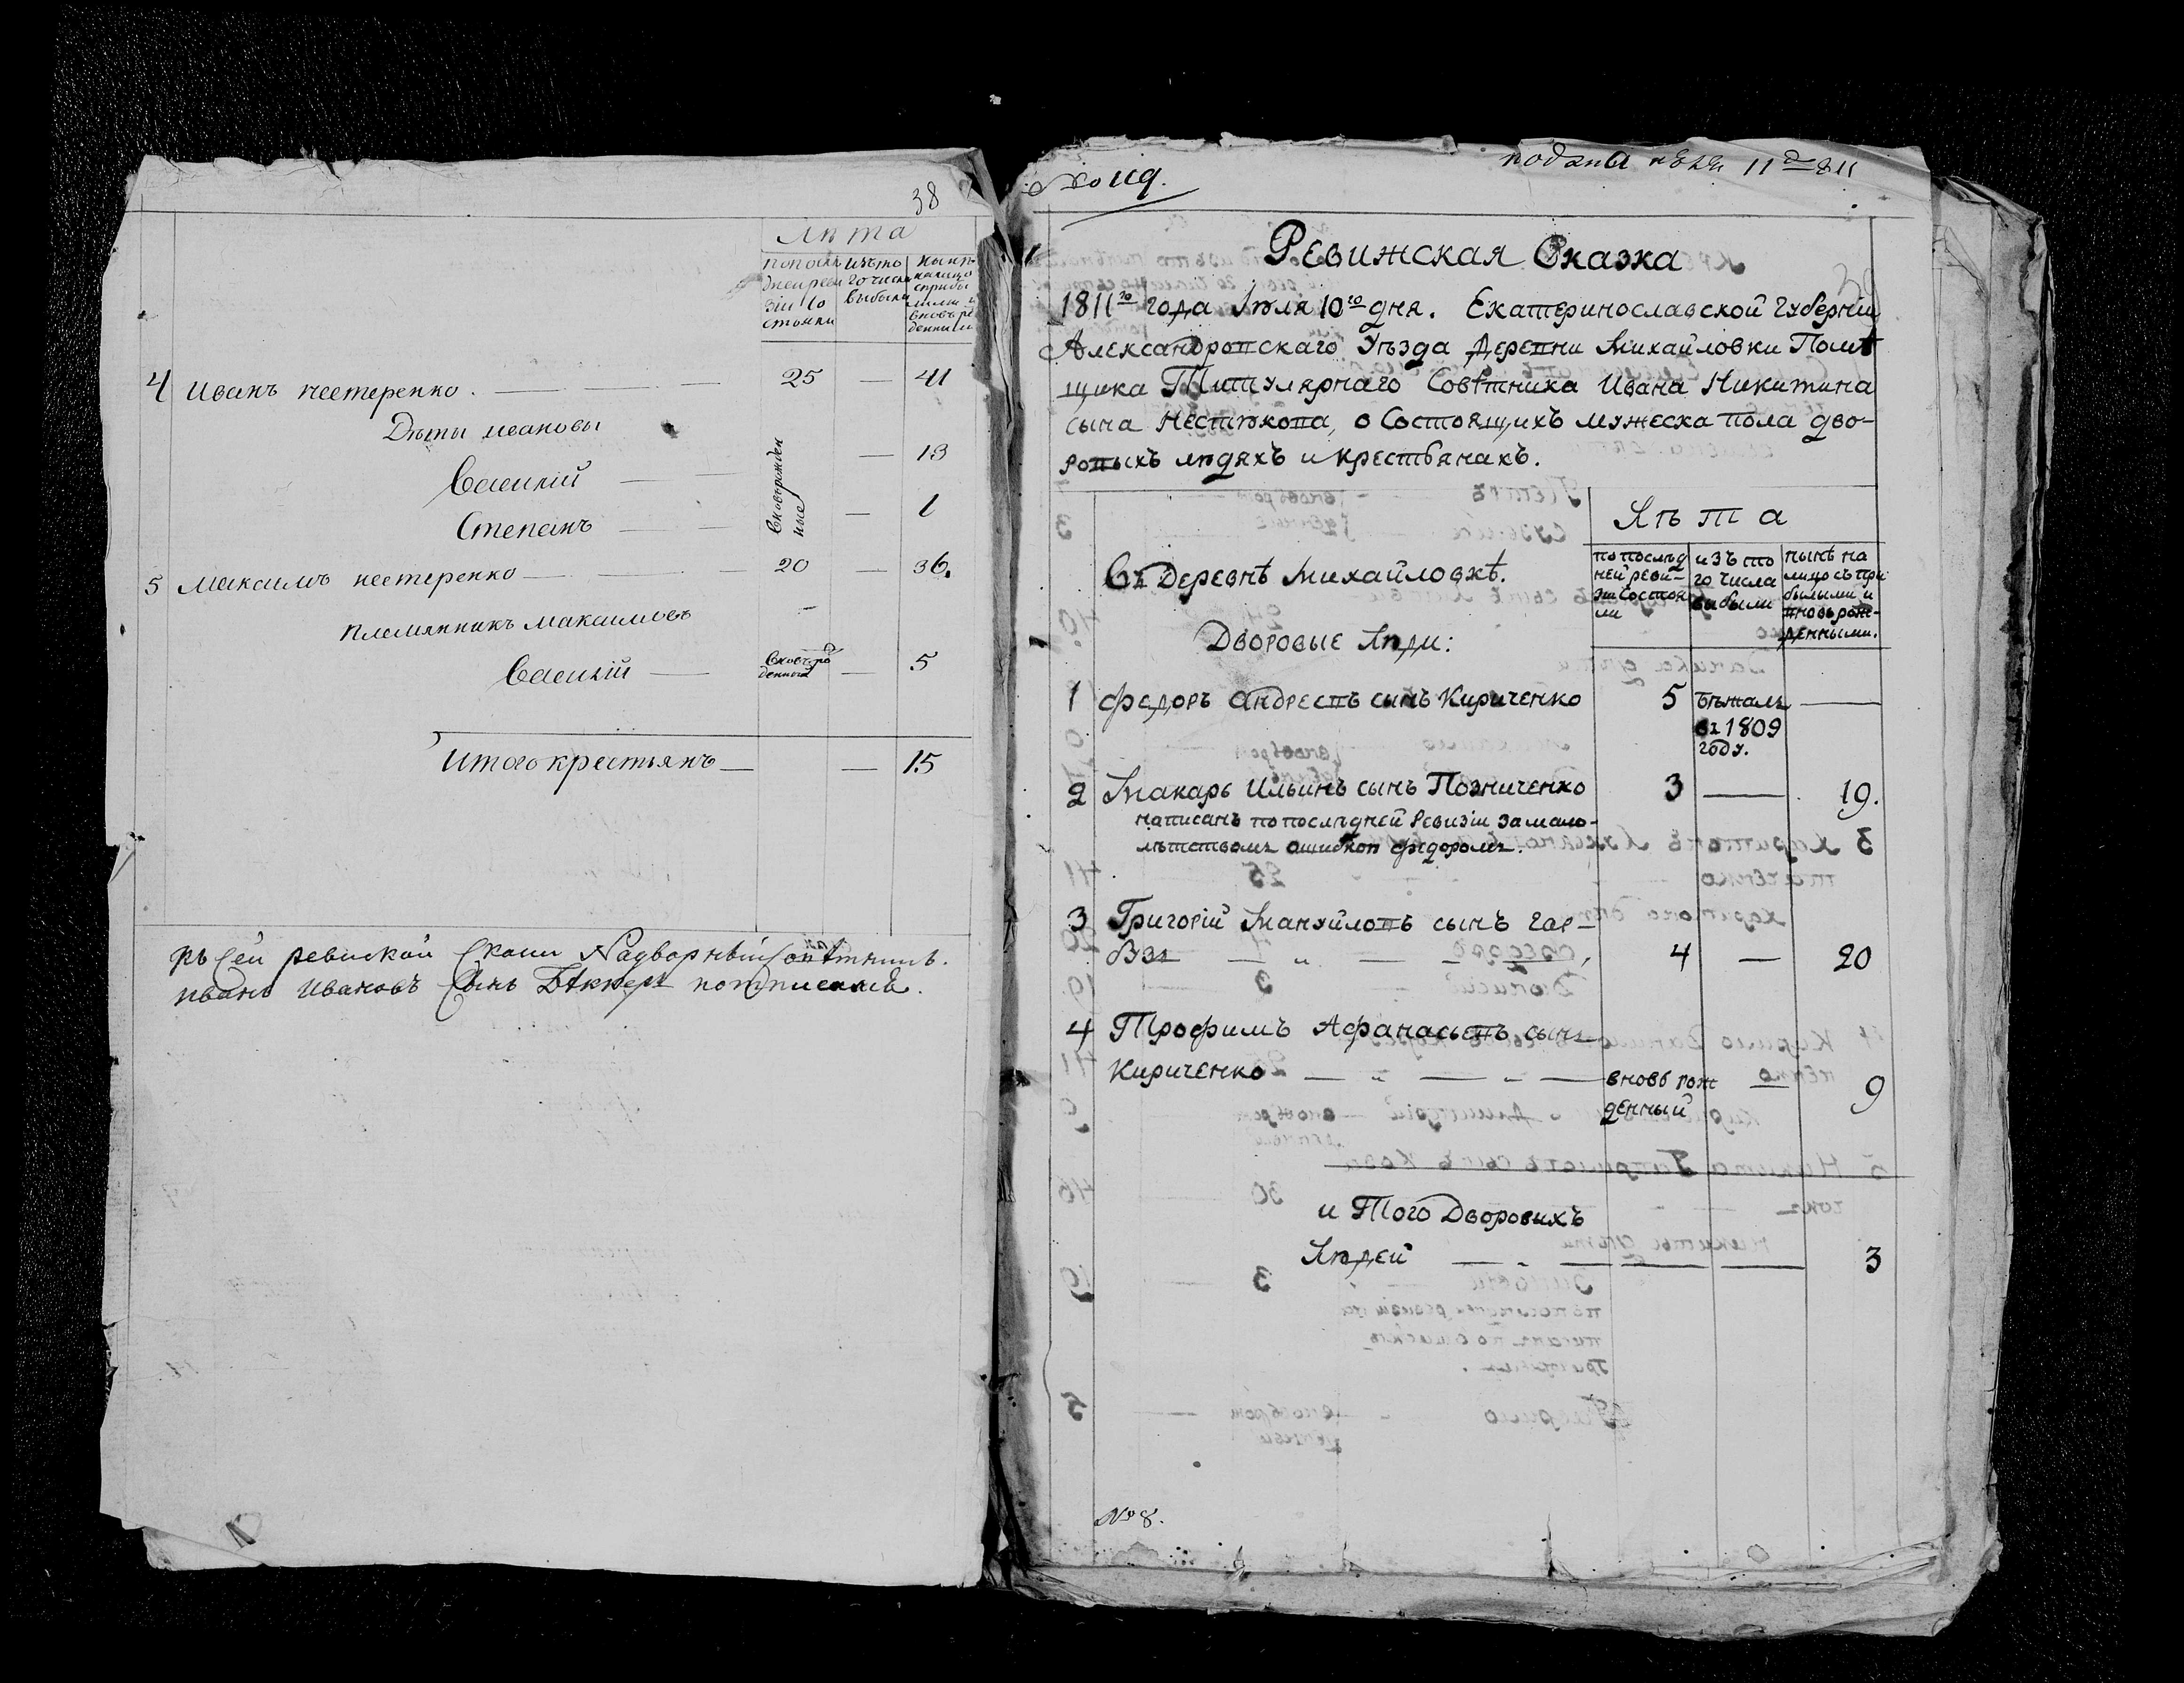 38
Лѣта
по послѣ
дней реви
зіи со
стояли
изъ то
го числа
выбыли
нынѣ
налицо
с прибы
лыми и
вновь ро
денными
4 Иванъ нестеренко. 25 — 41
Дѣти ивановы
Василій — 13
Степанъ — 1
вновьрожден
ные
5 Максимъ нестеренко — 20 — 36.
племянникъ максимовъ
Василій — вновь ро
денный — 5
Итого крестьянъ — — 15
къ сей ревиской скаски Надворный Советникъ.
иванъ Ивановъ Сынъ потписался.
No 119.
подана 11 811
Ревижская Сказка
1811го года Іюля 10го дня. Екатеринославской Губерніи
Александровскаго Уѣзда Деревни Михайловки Помѣ
щика Титулярнаго Совѣтника Ивана Никитина
сына Нестѣкова, о Состоящихъ мужеска пола дво-
ровыхъ людяхъ и крестьянахъ.
Лѣта
Въ Деревнѣ Михайловкѣ.
по послѣд
ней реви-
зіи состоя
ли
изъ то
го числа
выбыли
нынѣ на
лицо съ при
былыми и
вновь рож-
денными.
Дворовые Люди:
1 Федоръ Андреевъ сынъ Кириченко 5 бѣжалъ —
въ 1809
году.
2 Макаръ Ильинъ сынъ Позниченко 3 — 19.
написанъ по послѣдней Ревизіи за мало-
лѣтствомъ ошибкою федоромъ.
3 Григорій Мануйловъ сынъ Гар-
Вза — „ — — , 4 — 20
4 Трофимъ Афанасьевъ сынъ
Кириченко — „ — „ — вновь рож — 9
денный
и Того Дворовыхъ
Людей — „ — — — 3
No 8.